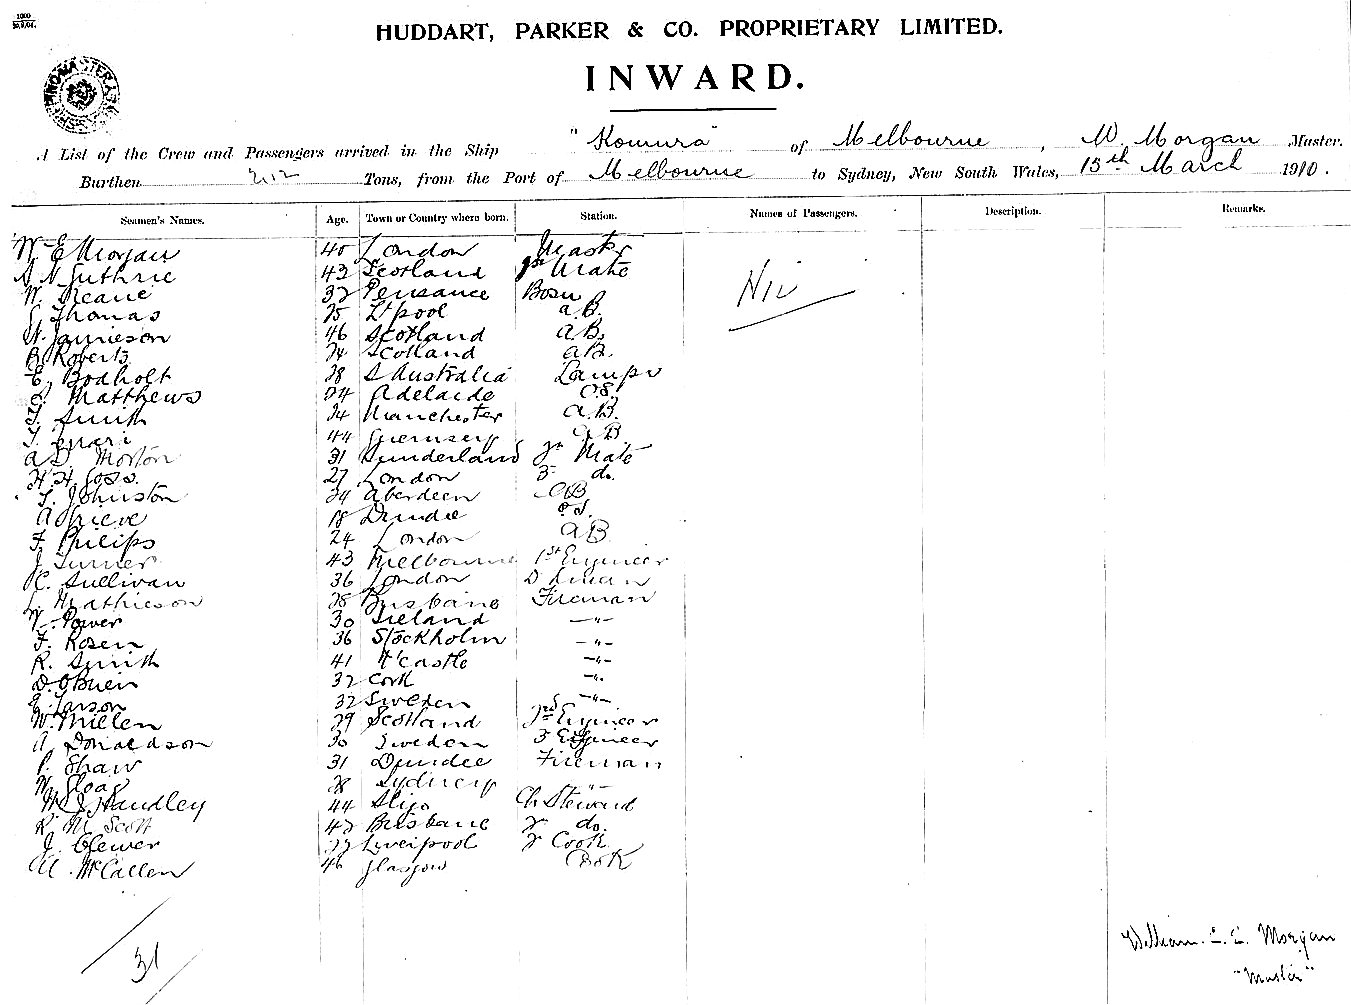 1000
HUDDART, PARKER & CO. PROPRIETARY LIMITED.
INWARD.
A List of the Crew and Passengers arrived in the Ship "Komura" of Melbourne, W. Morgan Master.
Burthen 2112 Tons, from the Port of Melbourne to Sydney, New South Wales, 15th March 1910.
Seamen's Names. Age. Town or Country where born. Station. Names of Passengers. Description. Remarks.
W E Morgan 40 London Master
A N Guthrie 43 Scotland 1st Mate Nil
W. Keane 32 Pensance Bosn
Thomas 25 L'pool A.B.
Jamieson 46 Scotland A.B.
B Roberts 24 Scotland A.B.
Bodholt 28 S Australia Lampr
Matthews 24 Adelaide O.S.
T. Smith 24 Manchester A.B.
T. 44 Guernsey A.B.
A D Morton 31 Sunderland 2nd Mate
H. H. Goss. 27 London 3 do.
T. Johnston 24 Aberdeen AB
A Grieve 18 Dundee O.S.
F Philips 24 London AB
J Turner 43 Melbourne 1st Engineer
C. Sullivan 36 London
Mathieson 28 Brisbane Fireman
W. Power 30 Ireland -"-
F. Rosen 36 Stockholm -"-
R. Smith 41 N'castle -"-
D. O'Brien 32 Cork -"-
E Larson 32 Sweden -"-
W. Millen 29 Scotland 2nd Engineer
A Donaldson 30 Sweden 3 Engineer
P. Shaw 31 Dundee Fireman
W Sloag 28 Sydney -"-
Handley 44 Sligo Ch Steward
R. M Scott 42 Brisbane 2 do.
J. Clewer Liverpool 2 Cook
McCallen 46 Glasgow Cook
31
William E. E. Morgan
"Master"